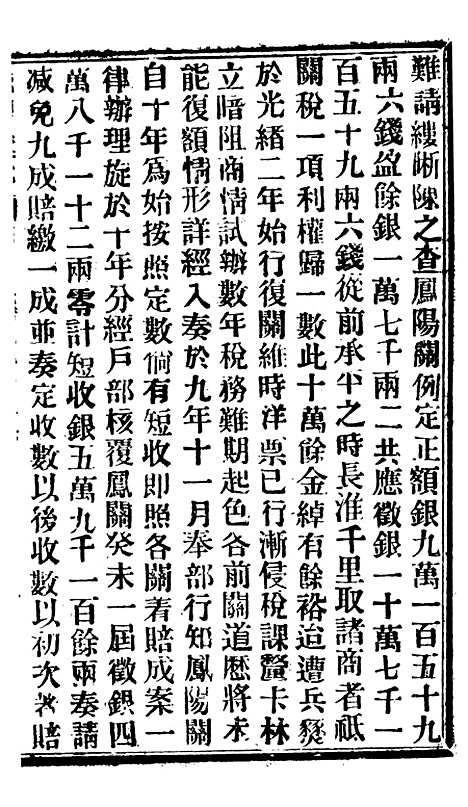 難請縷晰陳之查鳳陽關例定正額銀九萬一百五十九
兩六錢盈餘銀一萬七千兩二共應徵銀一十萬七千一
百五十九兩六錢從前承平之時長淮千里取諸商者祇
關稅一項利權歸一數此十萬餘金綽有餘裕迨遭兵燹
於光緒二年始行復關維時洋票已行漸侵稅課釐卡林
立暗阻商情試辦數年稅務難期起色各前關道歷將未
能復額情形詳經入奏於九年十一月奉部行知鳳陽關
自十年為始按照定數倘有短收即照各關著賠成案一
律辦理旋於十年分經戶部核覆鳳關癸未一屆徵銀四
萬八千一十二兩零計短收銀五萬九千一百餘兩奏請
減免九成賠繳一成並奏定收數以後收數以初次著賠